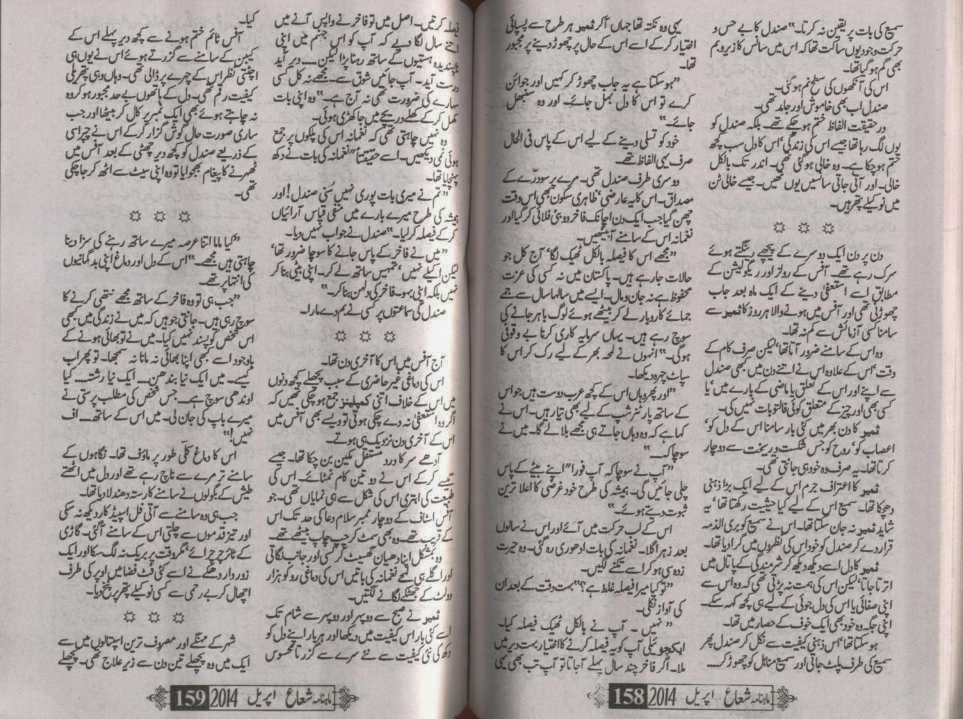 سمیع کی بات پر یقین نہ کرتا۔" صندل کا بے حس و
حرکت وجود یوں ساکت تھا کہ اس میں سانس کا زیر و بم
بھی گم ہو گیا تھا۔
اس کی آنکھوں کی سطح نم ہو گئی۔
صندل اب بھی خاموش اور جامد تھی۔
در حقیقت الفاظ ختم ہو چکے تھے۔ بلکہ صندل کو
یوں لگ رہا تھا جیسے اس کی زندگی' اس کا دل سب کچھ
ختم ہو چکا ہے۔ وہ خالی ہو گئی تھی۔ اندر تک بالکل
خالی۔ اور آتی جاتی سانسیں یوں تھیں۔ جیسے خالی ٹن
میں نوکیلے پتھر ہیں۔
دن پر دن ایک دوسرے کے پیچھے رینگتے ہوئے
سرک رہے تھے۔ آفس کے رولز اور ریگولیشن کے
مطابق اسے استعفیٰ دینے کے ایک ماہ بعد جاب
چھوڑنی تھی اور آفس میں ہونے والا ہر روز کا ثمیر سے
سامنا کسی آزمائش سے کم نہ تھا۔
وہ اس کے سامنے ضرور آتا تھا' لیکن صرف کام کے
وقت' اس کے علاوہ اس نے اتنے دن میں بھی صندل
سے اپنے اور اس کے تعلق یا ماضی کے بارے میں' یا
کسی بھی اور چیز کے متعلق کوئی فالتو بات نہیں کی۔
ثمیر کا دن بھر میں کئی بار سامنا اس کے دل کو'
اعصاب کو' روح کو جس شکست و ریخت سے دوچار
کرتا تھا۔ یہ صرف وہ خود ہی جانتی تھی۔
ثمیر کا اعتراف جرم اس کے لیے ایک بڑا ذہنی
دھچکا تھا۔ سمیع اس کے لیے کیا حیثیت رکھتا تھا' یہ
شاید ثمیر نہ جان سکتا تھا۔ اس نے سمیع کو بری الذمہ
قرار دے کر صندل کو خود اس کی نظروں میں گرا دیا تھا۔
ثمیر کا دل اسے دیکھ دیکھ کر شرمندگی کے پاتال میں
اترتا جاتا' لیکن اس کی ہمت نہ پڑتی تھی کہ وہ اس سے
اپنی صفائی یا اس کی دل جوئی کے لیے ہی کچھ کہہ سکے۔
اپنی جگہ وہ خود بھی ایک خوف کے حصار میں تھا۔
ہو سکتا تھا' اس ذہنی کیفیت سے نکل کر صندل پھر
سمیع کی طرف پلٹ جاتی اور سمیع مناہل کو چھوڑ کر۔
یہی وہ نکتہ تھا جہاں آکر ثمیر ہر طرح سے پسپائی
اختیار کر کے اسے اس کے حال پر چھوڑ دینے پر مجبور
تھا۔
"ہو سکتا ہے یہ جاب چھوڑ کر کہیں اور جوائن
کرے تو اس کا دل بہل جائے۔ اور وہ سنبھل
جائے۔"
خود کو تسلی دینے کے لیے اس کے پاس فی الحال
صرف یہی الفاظ تھے۔
دوسری طرف صندل تھی۔ مرے پر سو درے کے
مصداق۔ اس کا یہ عارضی' ظاہری سکون بھی اس وقت
چھن گیا جب ایک دن اچانک فاخر دبئی فلائی کر گیا اور
نغمانہ اس کے سامنے آ بیٹھیں۔
"مجھے اس کا فیصلہ بالکل ٹھیک لگا' آج کل جو
حالات جا رہے ہیں۔ پاکستان میں نہ کسی کی عزت
محفوظ ہے نہ جان و مال۔ ایسے میں سالہا سال سے جمے
جمائے کاروبار لے کر بیٹھے ہوئے لوگ باہر جانے کی
سوچ رہے ہیں۔ یہاں سرمایہ کاری کرنا بے وقوفی
ہوگی۔" انہوں نے لمحہ بھر کے لیے رک کر اس کا
سپاٹ چہرہ دیکھا۔
"اور پھر وہاں اس کے کچھ عرب دوست ہیں جو اس
کے ساتھ پارٹنر شپ کے لیے بھی تیار ہیں۔ اس نے
کہا ہے کہ وہ وہاں جاتے ہی مجھے بلا لے گا۔ میں نے
سوچا کہ۔"
"آپ نے سوچا کہ آپ فورا" اپنے بیٹے کے پاس
چلی جائیں گی۔ ہمیشہ کی طرح خود غرضی کا اعلا ترین
ثبوت دیتے ہوئے۔"
اس کے لب حرکت میں آئے اور اس نے سالوں
بعد زہر اگلا۔ نغمانہ کی بات ادھوری رہ گئی۔ وہ حیرت
زدہ سی ہو کر اسے تکنے لگیں۔
"تو کیا میرا فیصلہ غلط ہے؟" بہت وقت کے بعد ان
کی آواز نکلی۔
"نہیں۔ آپ نے بالکل ٹھیک فیصلہ کیا۔
ایکچوئلی آپ کو یہ فیصلہ کرنے کا اختیار بہت دیر میں
ملا۔ اگر فاخر چند سال پہلے آ جاتا تو آپ تب بھی یہی
ماہنامہ شعاع اپریل 2014 158
فیصلہ کرتیں۔ اصل میں تو فاخر نے واپس آنے میں
اتنے سال لگا دیے کہ آپ کو اس جہنم میں اپنی
ناپسندیدہ ہستیوں کے ساتھ رہنا پڑا لیکن۔ دیر آید
درست آید۔ آپ جائیں شوق سے۔ مجھے نہ کل کسی
سہارے کی ضرورت تھی نہ آج ہے۔" وہ اپنی بات
مکمل کر کے کھلے دریچے میں جا کھڑی ہوئی۔
وہ نہیں چاہتی تھی کہ نغمانہ اس کی پلکوں پر جمع
ہوئی نمی دیکھیں۔ اسے حقیقتا" نغمانہ کی بات نے دکھ
پہنچایا تھا۔
"تم نے میری بات پوری نہیں سنی صندل! اور
ہمیشہ کی طرح میرے بارے میں منفی قیاس آرائیاں
کر کے فیصلہ کر لیا۔" صندل نے جواب نہیں دیا۔
"میں نے فاخر کے پاس جانے کا سوچا ضرور تھا'
لیکن اکیلے نہیں' تمہیں ساتھ لے کر۔ اپنی بیٹی بنا کر
نہیں بلکہ اپنی بہو۔ فاخر کی دلہن بنا کر۔"
صندل کی سماعتوں پر کسی نے بم دے مارا۔
آج آفس میں اس کا آخری دن تھا۔
اس کی دماغی غیر حاضری کے سبب پچھلے کچھ دنوں
میں اس کے خلاف اتنی کمپلینز جمع ہو چکی تھیں کہ
اگر وہ استعفیٰ نہ دے چکی ہوتی تو ویسے بھی آفس میں
اس کے آخری دن نزدیک ہی ہوتے۔
آدھے سر کا درد مستقل مکین بن چکا تھا۔ جیسے
تیسے کر کے اس نے دو تین کام نمٹائے۔ اس کی
طبیعت کی ابتری اس کی شکل سے ہی نمایاں تھی۔ جو
آفس اسٹاف کے دو چار ممبر سلام دعا کی حد تک اس
کے قریب تھے۔ وہ بھی سمٹ کر چپ چاپ بیٹھے تھے۔
وہ بمشکل اپنا دھیان گھسیٹ کر کسی اور جانب لگاتی
اور اگلے ہی لمحے نغمانہ کی باتیں اس کی دماغی رو کو ہزار
وولٹ کے جھٹکے لگانے لگتیں۔
ثمیر نے صبح سے دوپہر اور دوپہر سے شام تک
اسے کئی بار اس کیفیت میں دیکھا اور ہر بار اپنے دل کو
دکھ کی نئی کیفیت سے نئے سرے سے گزرتا محسوس
کیا۔
آفس ٹائم ختم ہونے سے کچھ دیر پہلے اس کے
کیبن کے سامنے سے گزرتے ہوئے اس نے یوں ہی
اچٹتی نظر اس کے چہرے پر ڈالی تھی۔ وہاں وہی پتھریلی
کیفیت رقم تھی۔ دل کے ہاتھوں بے حد مجبور ہو کر وہ
نہ چاہتے ہوئے بھی ایک نمبر پر کال کر بیٹھا اور جب
ساری صورت حال گوش گزار کر کے اس نے چپراسی
کے ذریعے صندل کو کچھ دیر چھٹی کے بعد آفس میں
ٹھہرنے کا پیغام بھجوایا تو وہ اپنی سیٹ سے اٹھ کر جا چکی
تھی۔
"کیا ماما اتنا عرصہ میرے ساتھ رہنے کی سزا دینا
چاہتی ہیں مجھے۔" اس کے دل اور دماغ اپنی بدگمانیوں
کی انتہا پر تھے۔
"جب ہی تو وہ فاخر کے ساتھ مجھے نتھی کرنے کا
سوچ رہی ہیں۔ جانتی جو ہیں کہ میں نے زندگی میں کبھی
اس شخص کو پسند نہیں کیا۔ میں نے تو بھائی ہونے کے
باوجود اسے کبھی اپنا بھائی نہ مانا نہ سمجھا۔ تو پھر اب
کیسے۔ میں ایک نیا بندھن۔ ایک نیا رشتہ۔ کیا
اوندھی سوچ ہے۔ جس شخص کی مطلب پرستی نے
میرے باپ کی جان لی۔ میں اس کے ساتھ۔ اف
نہیں!"
اس کا دماغ کلی طور پر ماؤف تھا۔ نگاہوں کے
سامنے ترمرے سے ناچ رہے تھے اور دل میں اٹھتے
طیش کے بگولوں نے سامنے کا رستہ دھندلا دیا تھا۔
جب ہی وہ سامنے سے آتی فل اسپیڈ کار دیکھ نہ سکی
اور تیز قدموں سے چلتی اس کے سامنے آ گئی۔ گاڑی
کے ٹائر چرچرائے' مگر وقت پر بریک نہ لگ سکا اور ایک
زور دار دھکے نے اسے کئی فٹ فضا میں اوپر کی طرف
اچھال کر بے رحمی سے کسی نوکیلے پتھر پر پٹخ دیا۔
شہر کے مہنگے اور مصروف ترین اسپتالوں میں سے
ایک میں وہ پچھلے تین دن سے زیر علاج تھی۔ پچھلے
ماہنامہ شعاع اپریل 2014 159